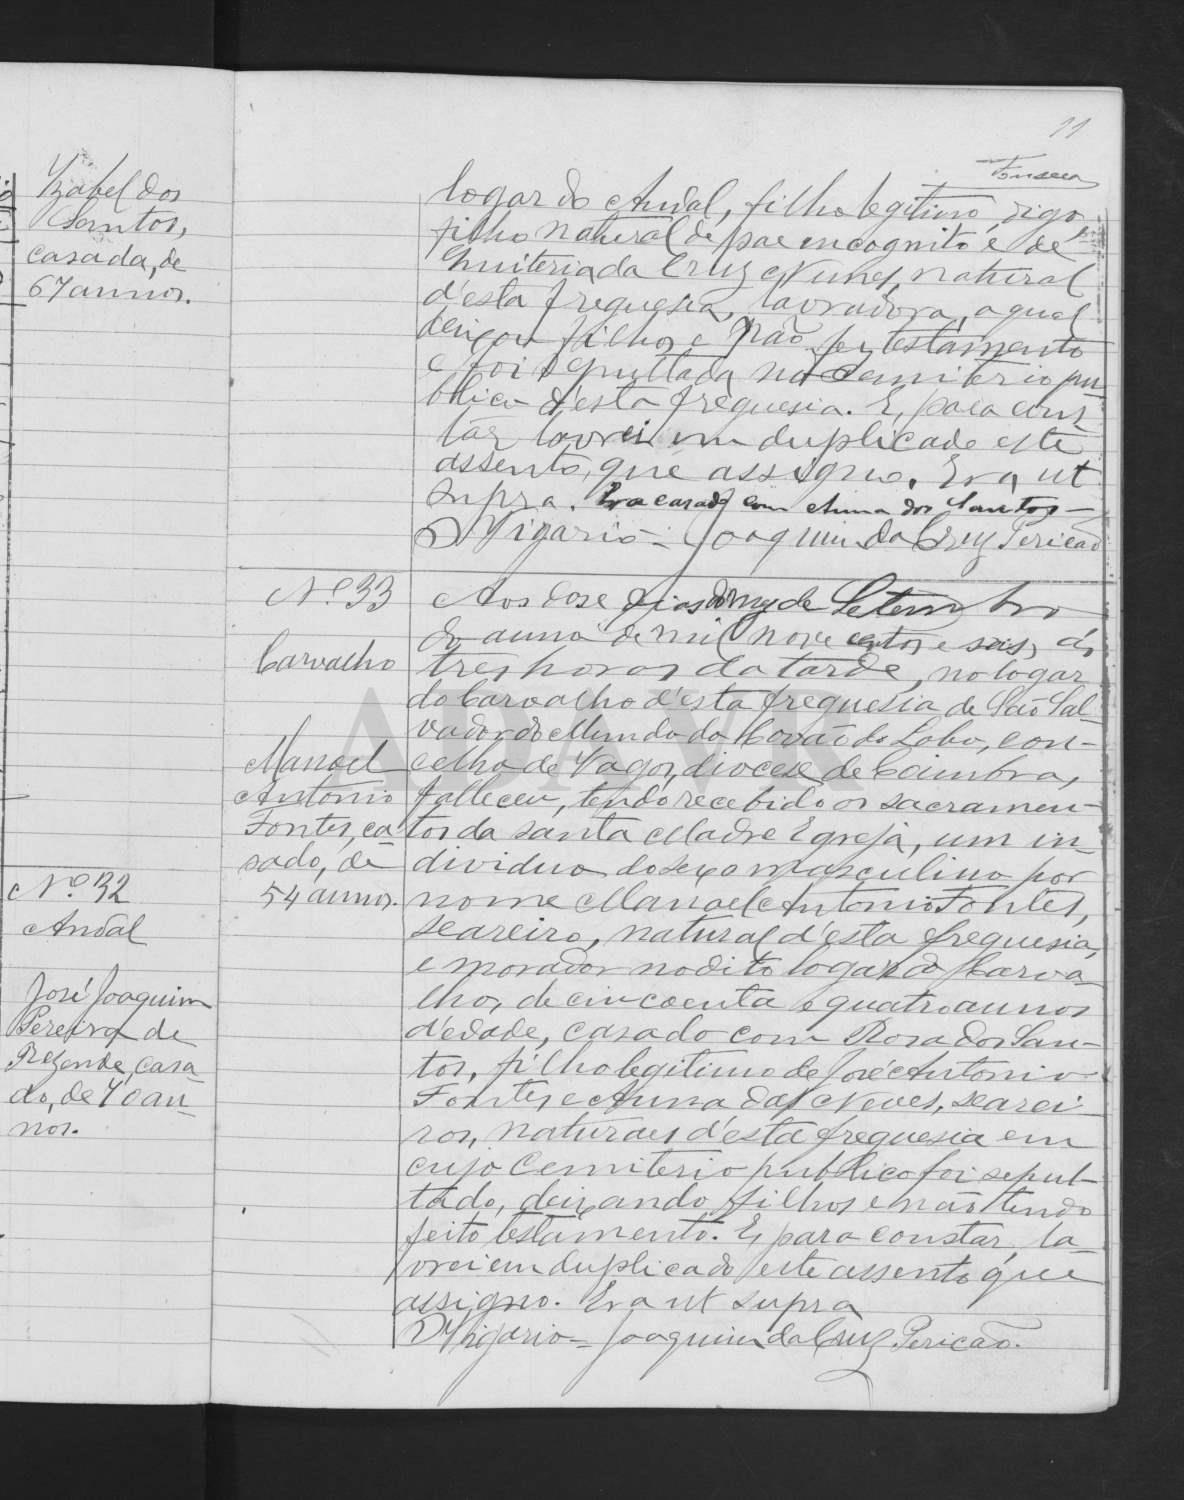 Yzabel dos
Santos,
casada, de
67 annos.
Nº 32
Andal
José Joaquim
Pereira de
Rezende, casa-
do, de 70 an-
nos.
11
Fonseca
logar do Andal, filho legitimo, digo
filho natural de pae incognito e de
Quiteria da Cruz Nunes, natural
d'esta freguesia, lavradora, a qual
deixou filhos e não fez testamento
e foi sepultada no cemiterio pu-
blico d'esta freguesia. E, para cons-
tar lavrei em duplicado este
assento, que assigno. Era ut
supra. Era casado com Anna dos Santos —
O Vigario = Joaquim da Cruz Pericão
Nº 33
Carvalho
Manoel
Antonio
Fontes, ca-
sado, de
54 annos.
Aos dose dias do mez de Setembro
do anno de mil nove centos e seis, ás
tres horas da tarde, no logar
do Carvalho d'esta freguesia de São Sal-
vador do Mundo do Covão do Lobo, con-
celho de Vagos, diocese de Coimbra,
falleceu, tendo recebido os sacramen-
tos da santa Madre Egreja, um in-
dividuo do sexo masculino por
nome Manoel Antonio Fontes,
seareiro, natural d'esta freguesia,
e morador no dito logar do Carva-
lho, de cincoenta e quatro annos
d'edade, casado com Rosa dos San-
tos, filho legitimo de José Antonio
Fontes e Anna das Neves, searei-
ros, naturaes d'esta freguesia em
cujo Cemiterio publico foi sepul-
tado, deixando filhos e não tendo
feito testamento. E, para constar, la-
vrei em duplicado este assento que
assigno. Era ut supra
O Vigario = Joaquim da Cruz Pericão.